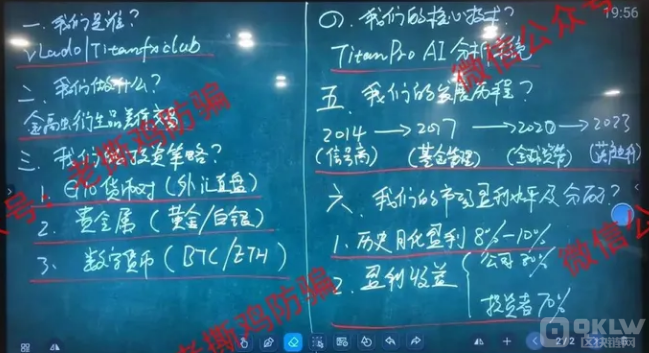 一. 我们是谁?
vLado|Titanfxclub
二. 我们做什么?
金融衍生品差价
三. 我们的投资策略?
1. 货币对 (外汇直盘)
2. 贵金属 (黄金/白银)
3. 数字货币 (BTC/ETH)
四. 我们的核心技术?
TitanPro AI 分析系统
五. 我们的发展历程?
2014 → 2017 → 2020 → 2023
(信号商) (基金管理)
六. 我们的市场盈利水平及分配?
1. 历史月化盈利 8%-10%
2. 盈利收益
公司 30%
投资者 70%
19:56
微信公众号
微信公众号: 老撕鸡防骗
老撕鸡防骗
微信公
2/2
OKLW
区块链网